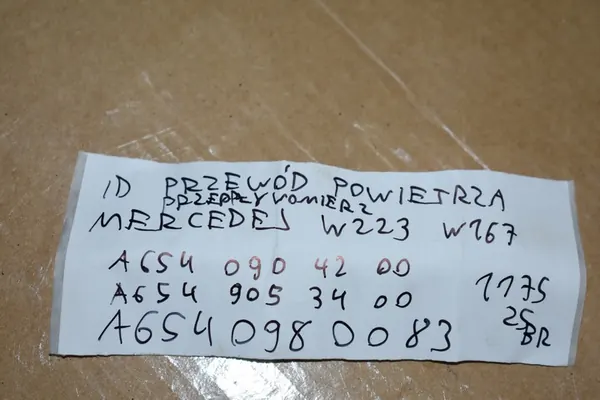 ID PRZEWÓD POWIETRZA
PRZEPŁYVOMIERZ
MERCEDES W223 W167
A654 090 42 00
A654 905 34 00
A654 098 0083
1175
25
BR